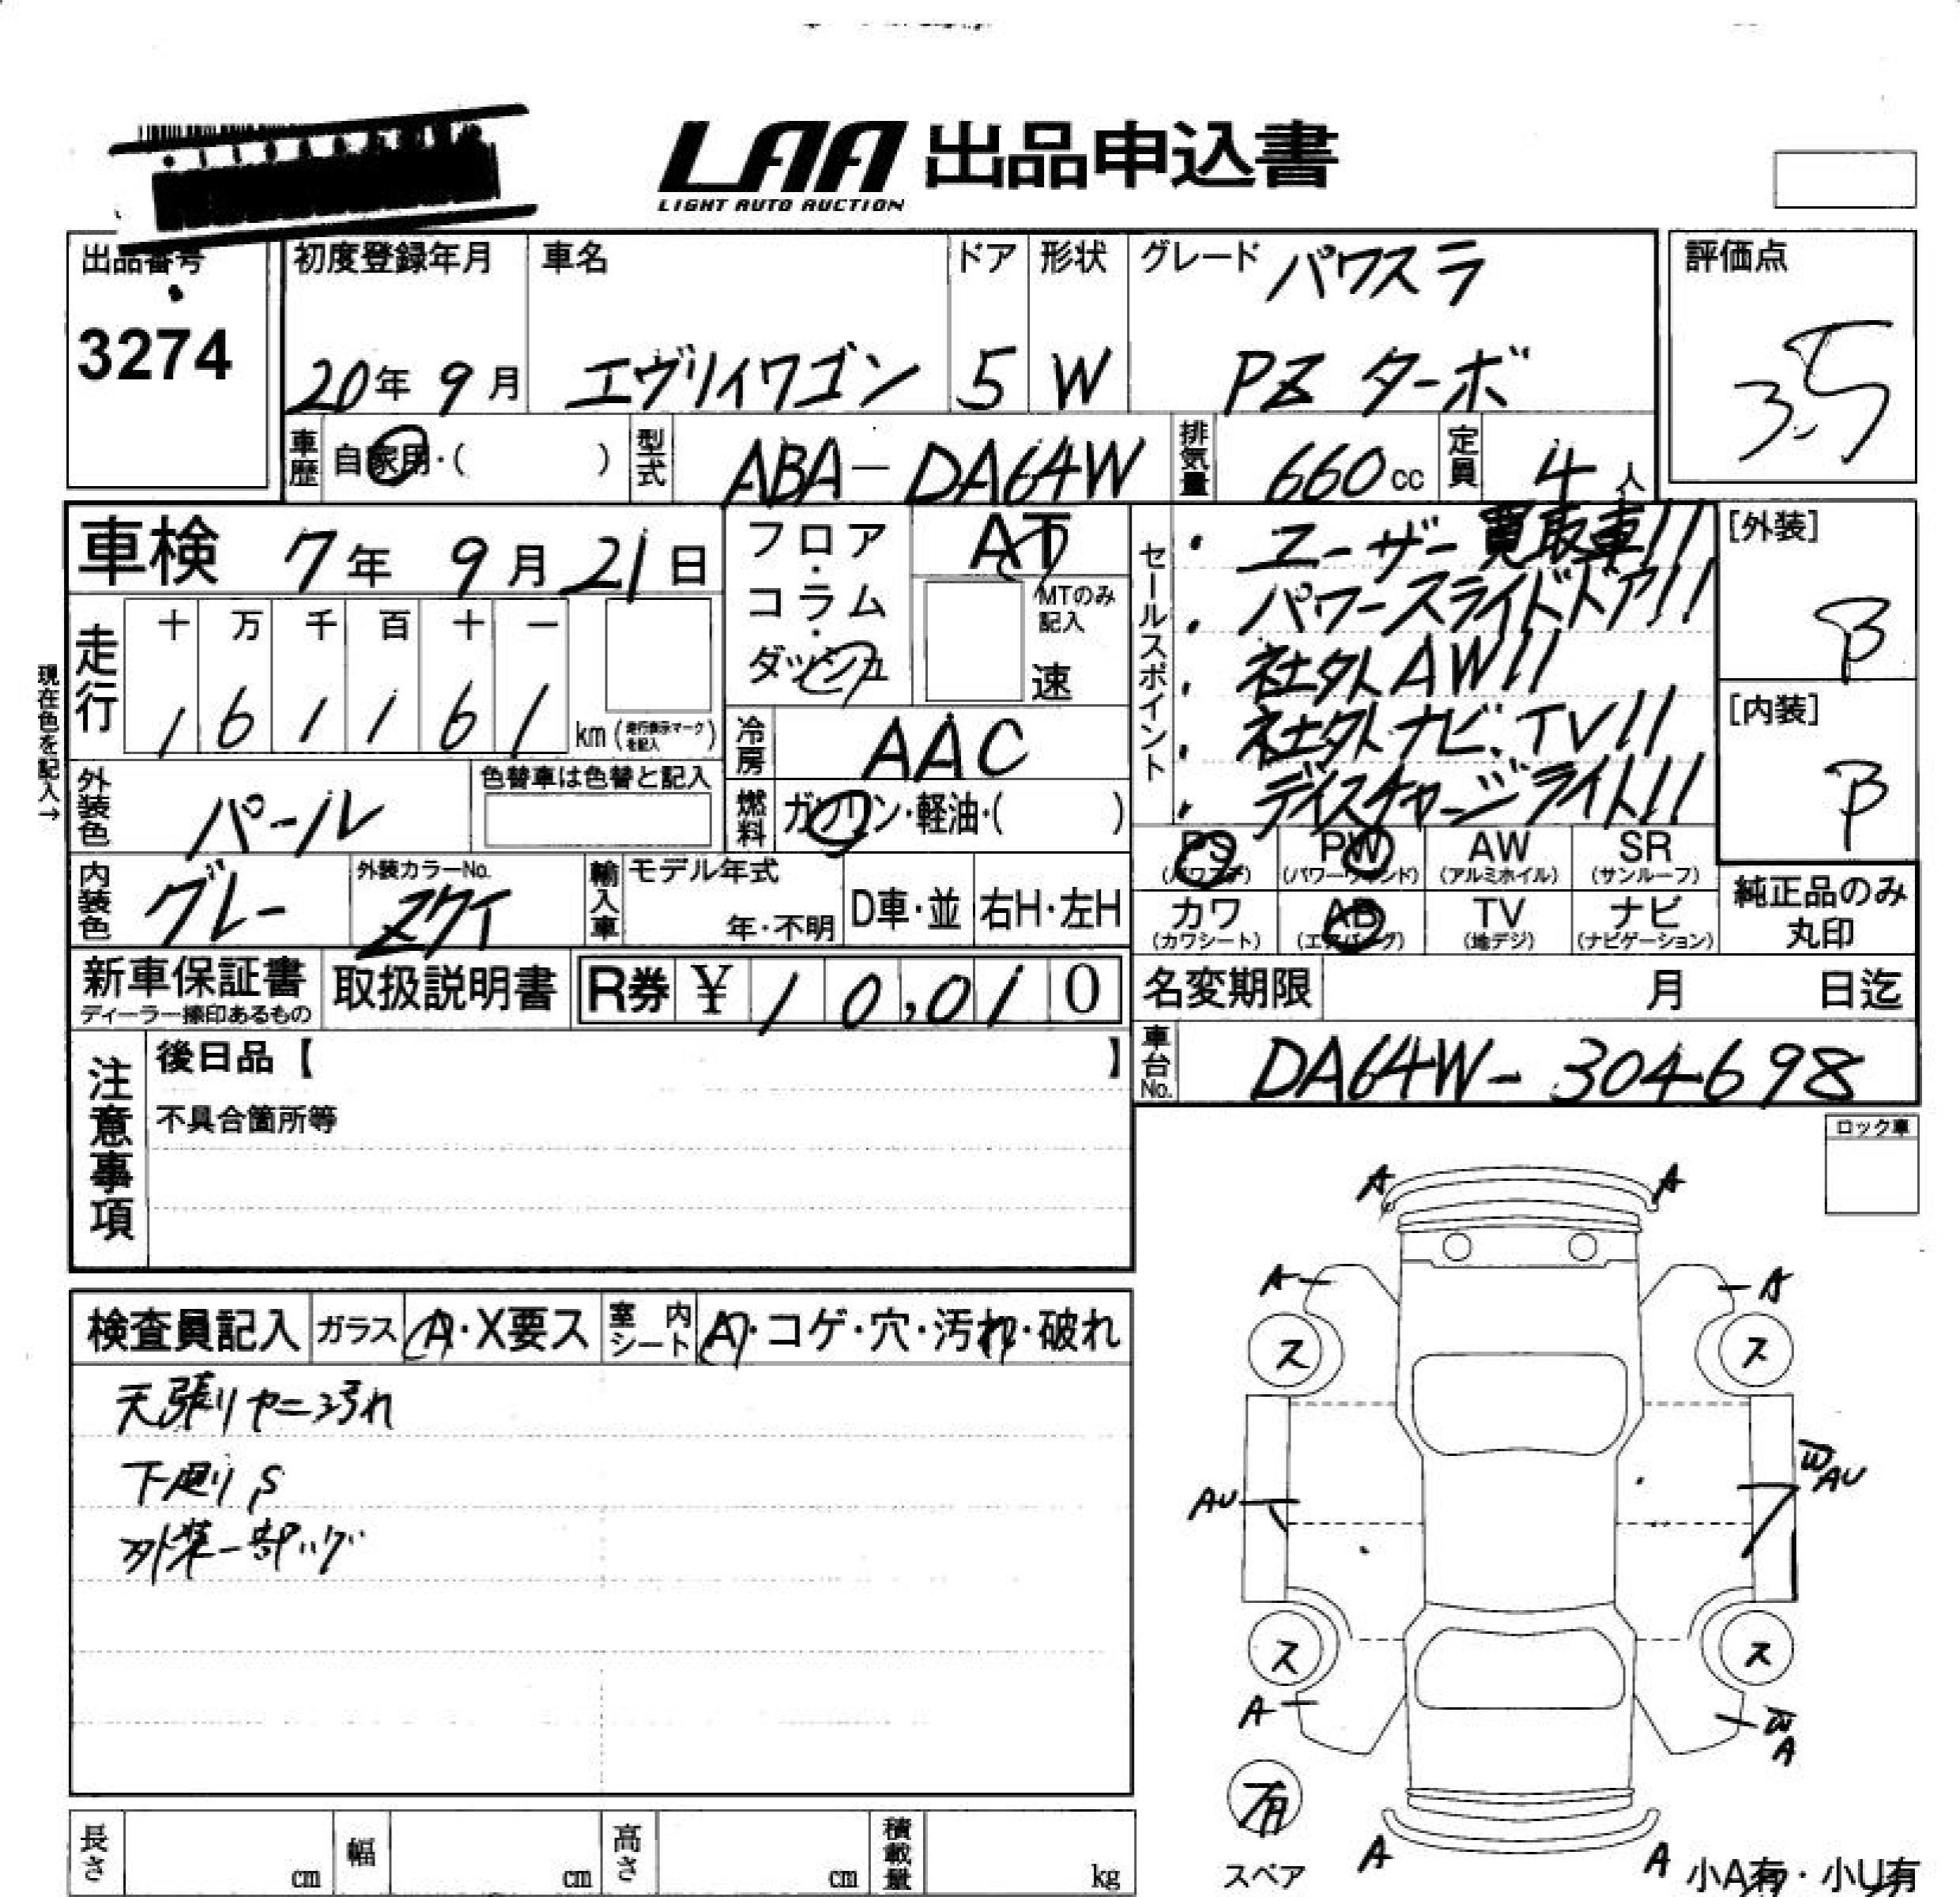 LAA 出品申込書
LIGHT AUTO AUCTION
出品番号
3274
初度登録年月
20年 9月
車名
エヴリイワゴン
ドア
5
形状
W
グレード パワスラ
PZ ターボ
評価点
3.5
車歴 自家用・( )
型式 ABA-DA64W
排気量 660cc
定員 4人
車検 7年 9月 21日
走行 十 万 千 百 十 一
1 6 1 1 6 1 km (走行表示マークを記入)
現在色を記入→
フロア・コラム・ダッシュ
AT
MTのみ記入
速
冷房 AAC
燃料 ガソリン・軽油・( )
セールスポイント
・ユーザー買取車!!
・パワースライドドア!!
・社外AW!!
・社外ナビ、TV!!
・ディスチャージライト!!
[外装]
B
[内装]
B
外装色 パール
色替車は色替と記入
内装色 グレー
外装カラーNo.
Z7T
輸入車 モデル年式
年・不明
D車・並
右H・左H
PS (パワステ)
PW (パワーウィンド)
AW (アルミホイル)
SR (サンルーフ)
カワ (カワシート)
AB (エアバック)
TV (地デジ)
ナビ (ナビゲーション)
純正品のみ
丸印
新車保証書
ディーラー捺印あるもの
取扱説明書
R券 ¥ 10,010
名変期限 月 日迄
車台No. DA64W-304698
注意事項
後日品【 】
不具合箇所等
ロック車
検査員記入
ガラス A・X要ス
室内シート A・コゲ・穴・汚れ・破れ
天張りヤニ汚れ
下廻りS
外装一部ハゲ
A A
A A
ス ス
AU
W AU
ス ス
A
W A
有
スペア
A A
小A有・小U有
長さ cm
幅 cm
高さ cm
積載量 kg